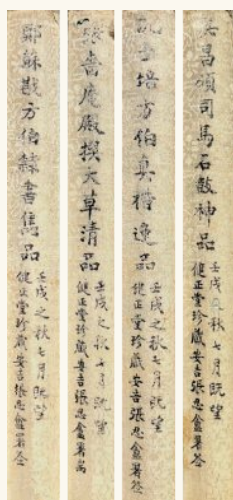 吳昌碩司馬石鼓神品
壬戌之秋七月既望
健正堂珍藏安吉張思盦署签
沈子培方伯真楷逸品
壬戌之秋七月既望
健正堂珍藏安吉張思盦署签
張嗇庵殿撰大草清品
壬戌之秋七月既望
健正堂珍藏安吉張思盦署耑
鄭蘇戡方伯隸書雋品
壬戌之秋七月既望
健正堂珍藏安吉張思盦署签